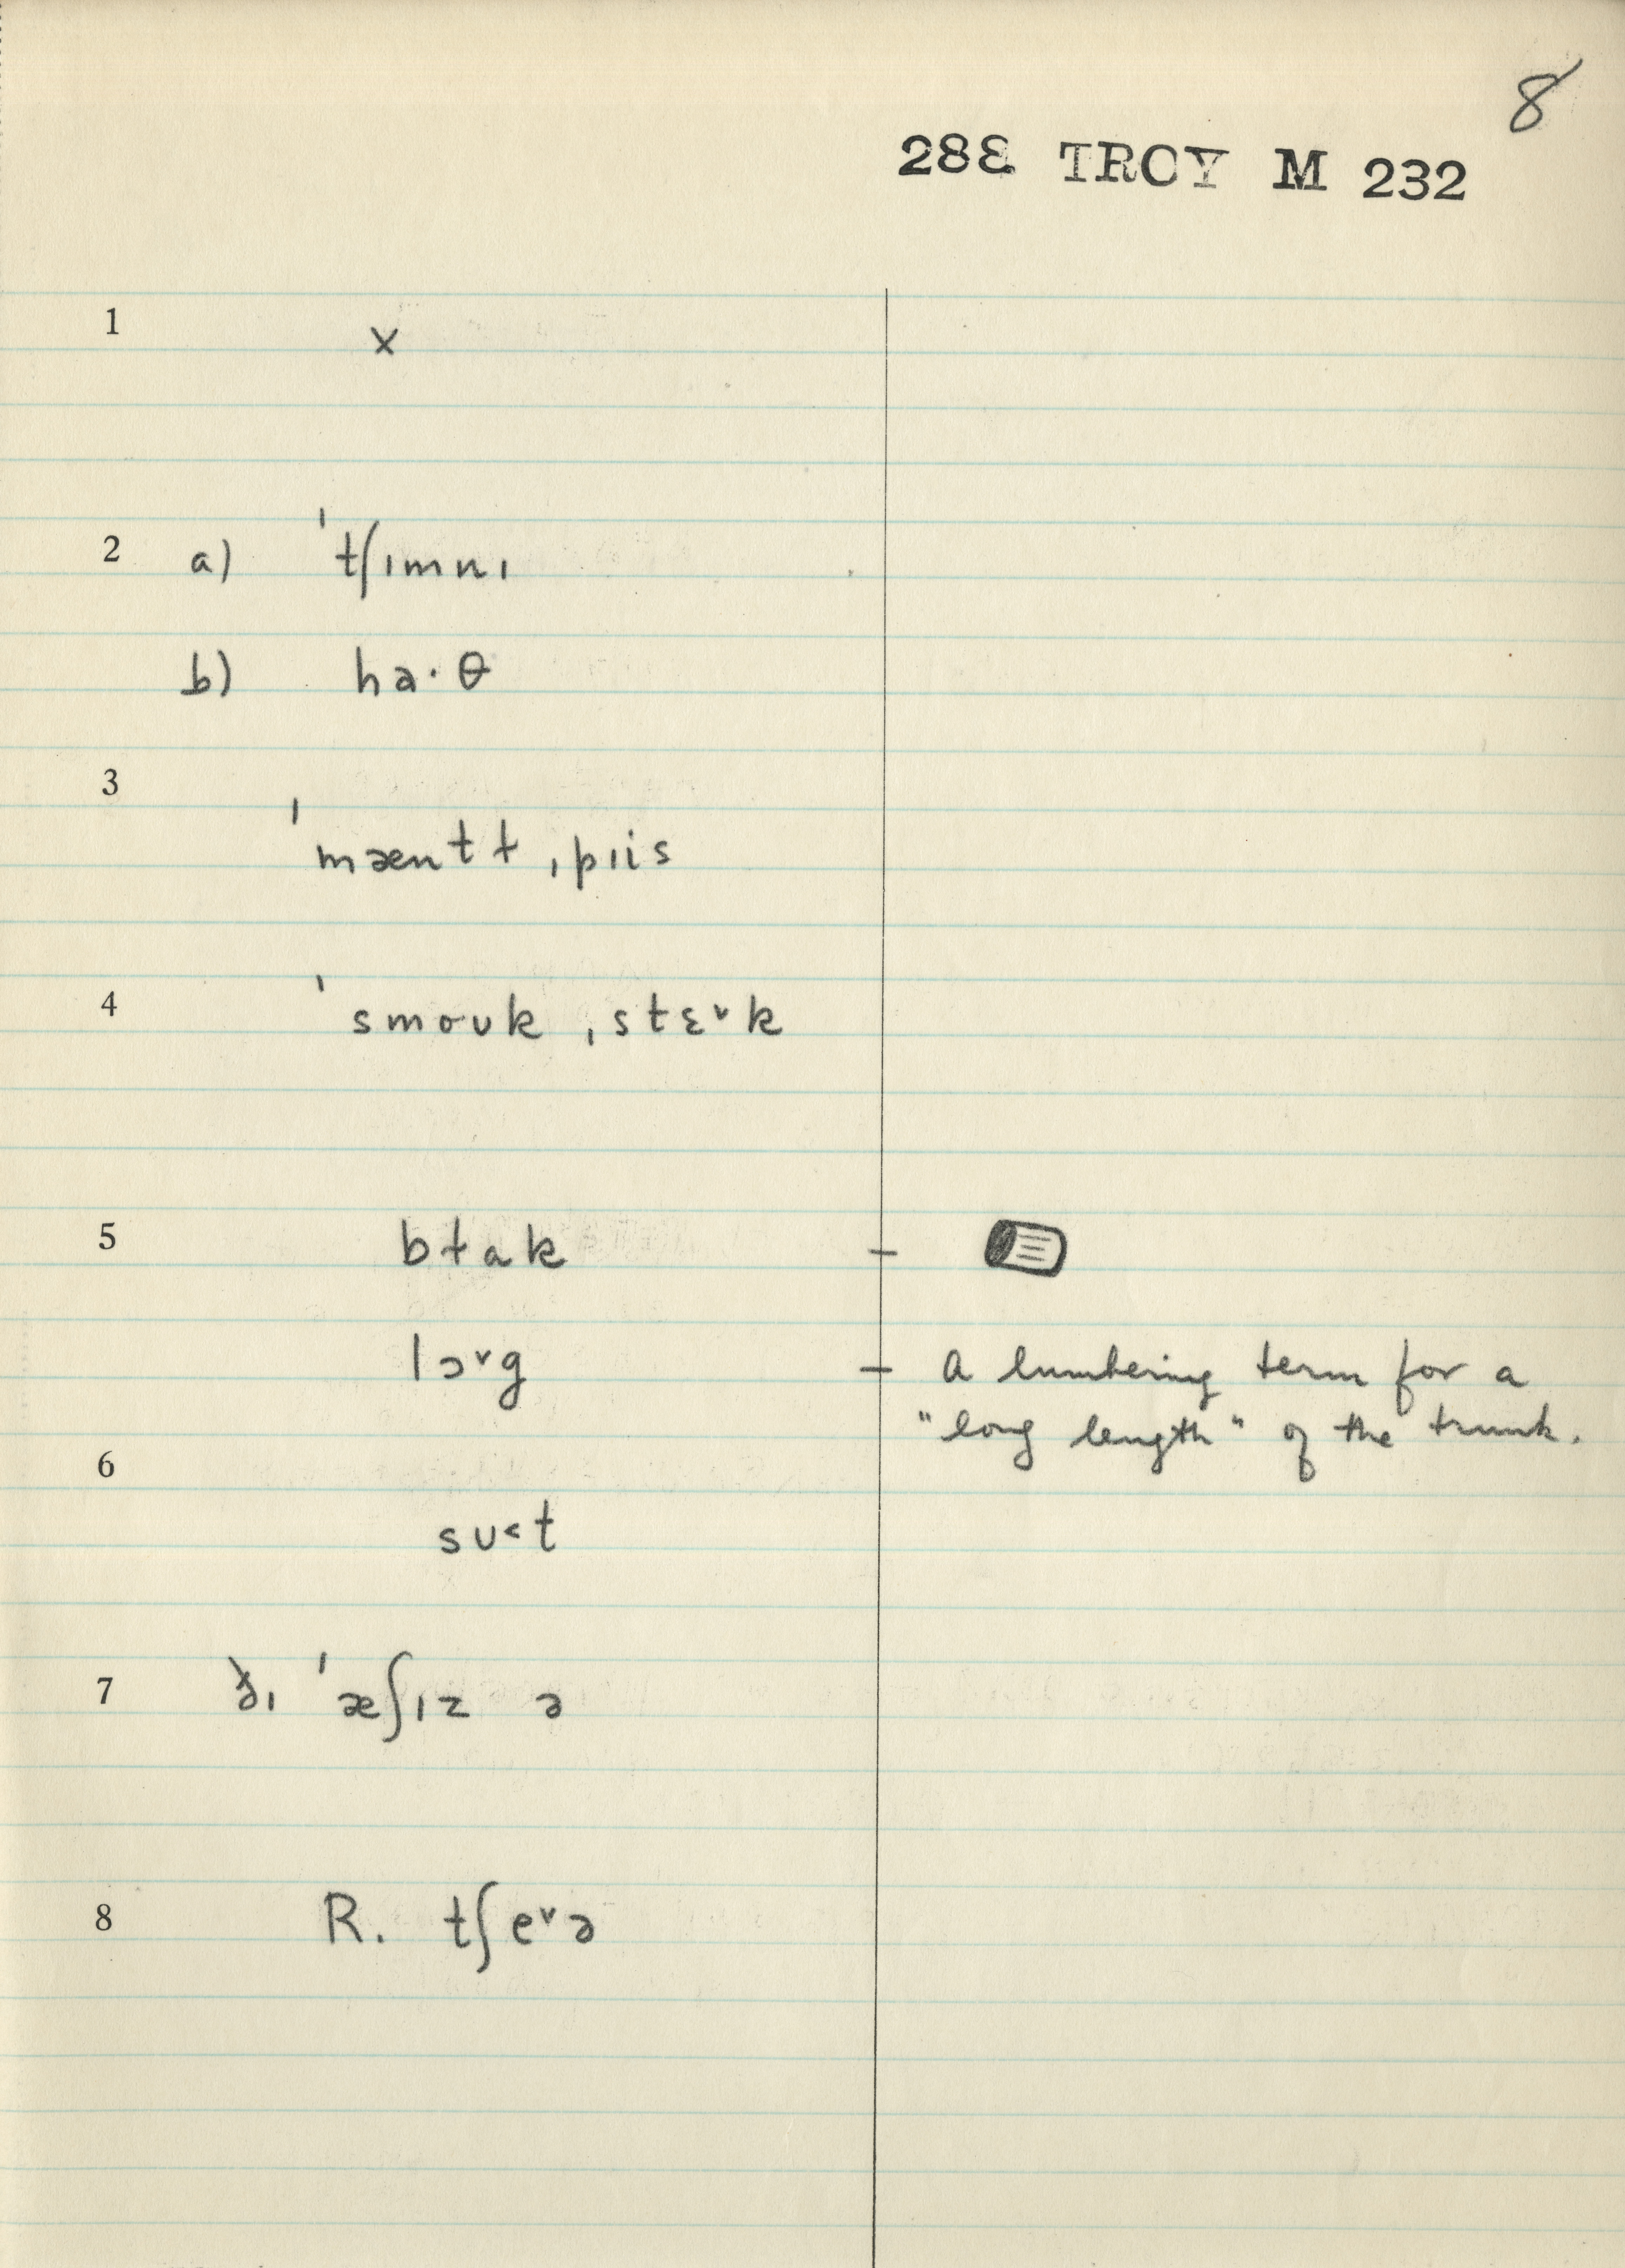 8
288 TROY M 232
1 x
2 a) ˈtʃɪmnɪ
b) ha·θ
3 ˈmæntɫ ˌpɪis
4 ˈsmoʊk ˌstɛ˅k
5 bɫɑk –
lɔ˅g – A lumbering term for a
"long length" of the trunk.
6
sʊ˂t
7 ðɪ ˈæʃɪz ə
8 R. tʃe˅ə